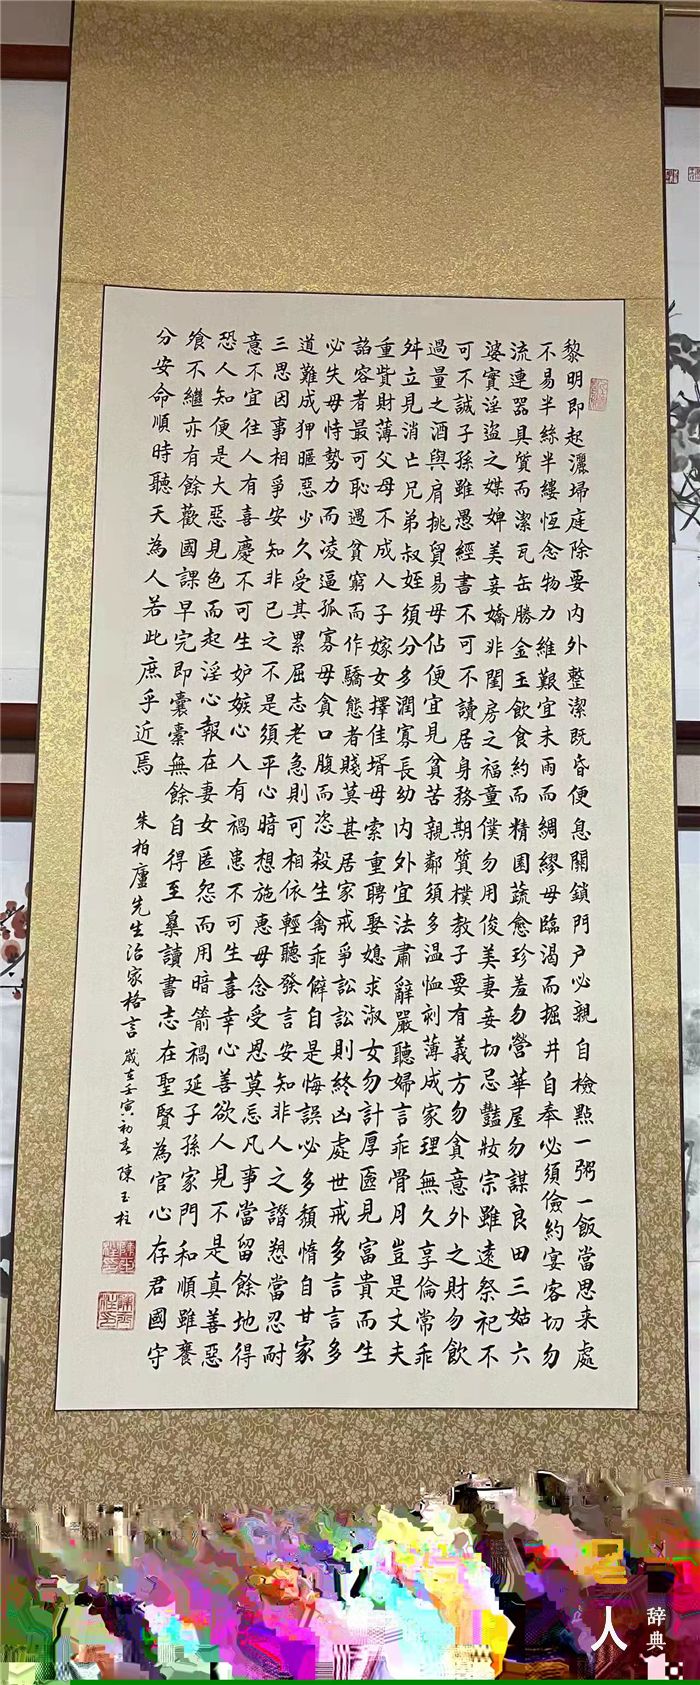 黎明即起灑埽庭除要内外整潔既昏便息關鎖門戶必親自檢點一粥一飯當思来處
不易半絲半縷恆念物力維艱宜未雨而綢繆毋臨渴而掘井自奉必須儉約宴客切勿
流連器具質而潔瓦缶勝金玉飲食約而精園蔬愈珍羞勿營華屋勿謀良田三姑六
婆實淫盜之媒婢美妾嬌非閨房之福童僕勿用俊美妻妾切忌豔妝宗雖遠祭祀不
可不誠子孫雖愚經書不可不讀居身務期質樸教子要有義方勿貪意外之財勿飲
過量之酒與肩挑貿易毋佔便宜見貧苦親鄰須多温恤刻薄成家理無久享倫常乖
舛立見消亡兄弟叔姪須分多潤寡長幼内外宜法肅辭嚴聽婦言乖骨月豈是丈夫
重貲財薄父母不成人子嫁女擇佳壻毋索重聘娶媳求淑女勿計厚匳見富貴而生
諂容者最可恥遇貧窮而作驕態者賤莫甚居家戒爭訟訟則終凶處世戒多言言多
必失毋恃勢力而凌逼孤寡毋貪口腹而恣殺生禽乖僻自是悔誤必多頹惰自甘家
道難成狎暱惡少久受其累屈志老急則可相依輕聽發言安知非人之譖愬當忍耐
三思因事相爭安知非己之不是須平心暗想施惠毋念受恩莫忘凡事當留餘地得
意不宜往人有喜慶不可生妒嫉心人有禍患不可生喜幸心善欲人見不是真善惡
恐人知便是大惡見色而起淫心報在妻女匿怨而用暗箭禍延子孫家門和順雖饔
飧不繼亦有餘歡國課早完即囊橐無餘自得至樂讀書志在聖賢為官心存君國守
分安命順時聽天為人若此庶乎近焉 朱柏廬先生治家格言 歲在壬寅初春陳玉柱
人
辞典